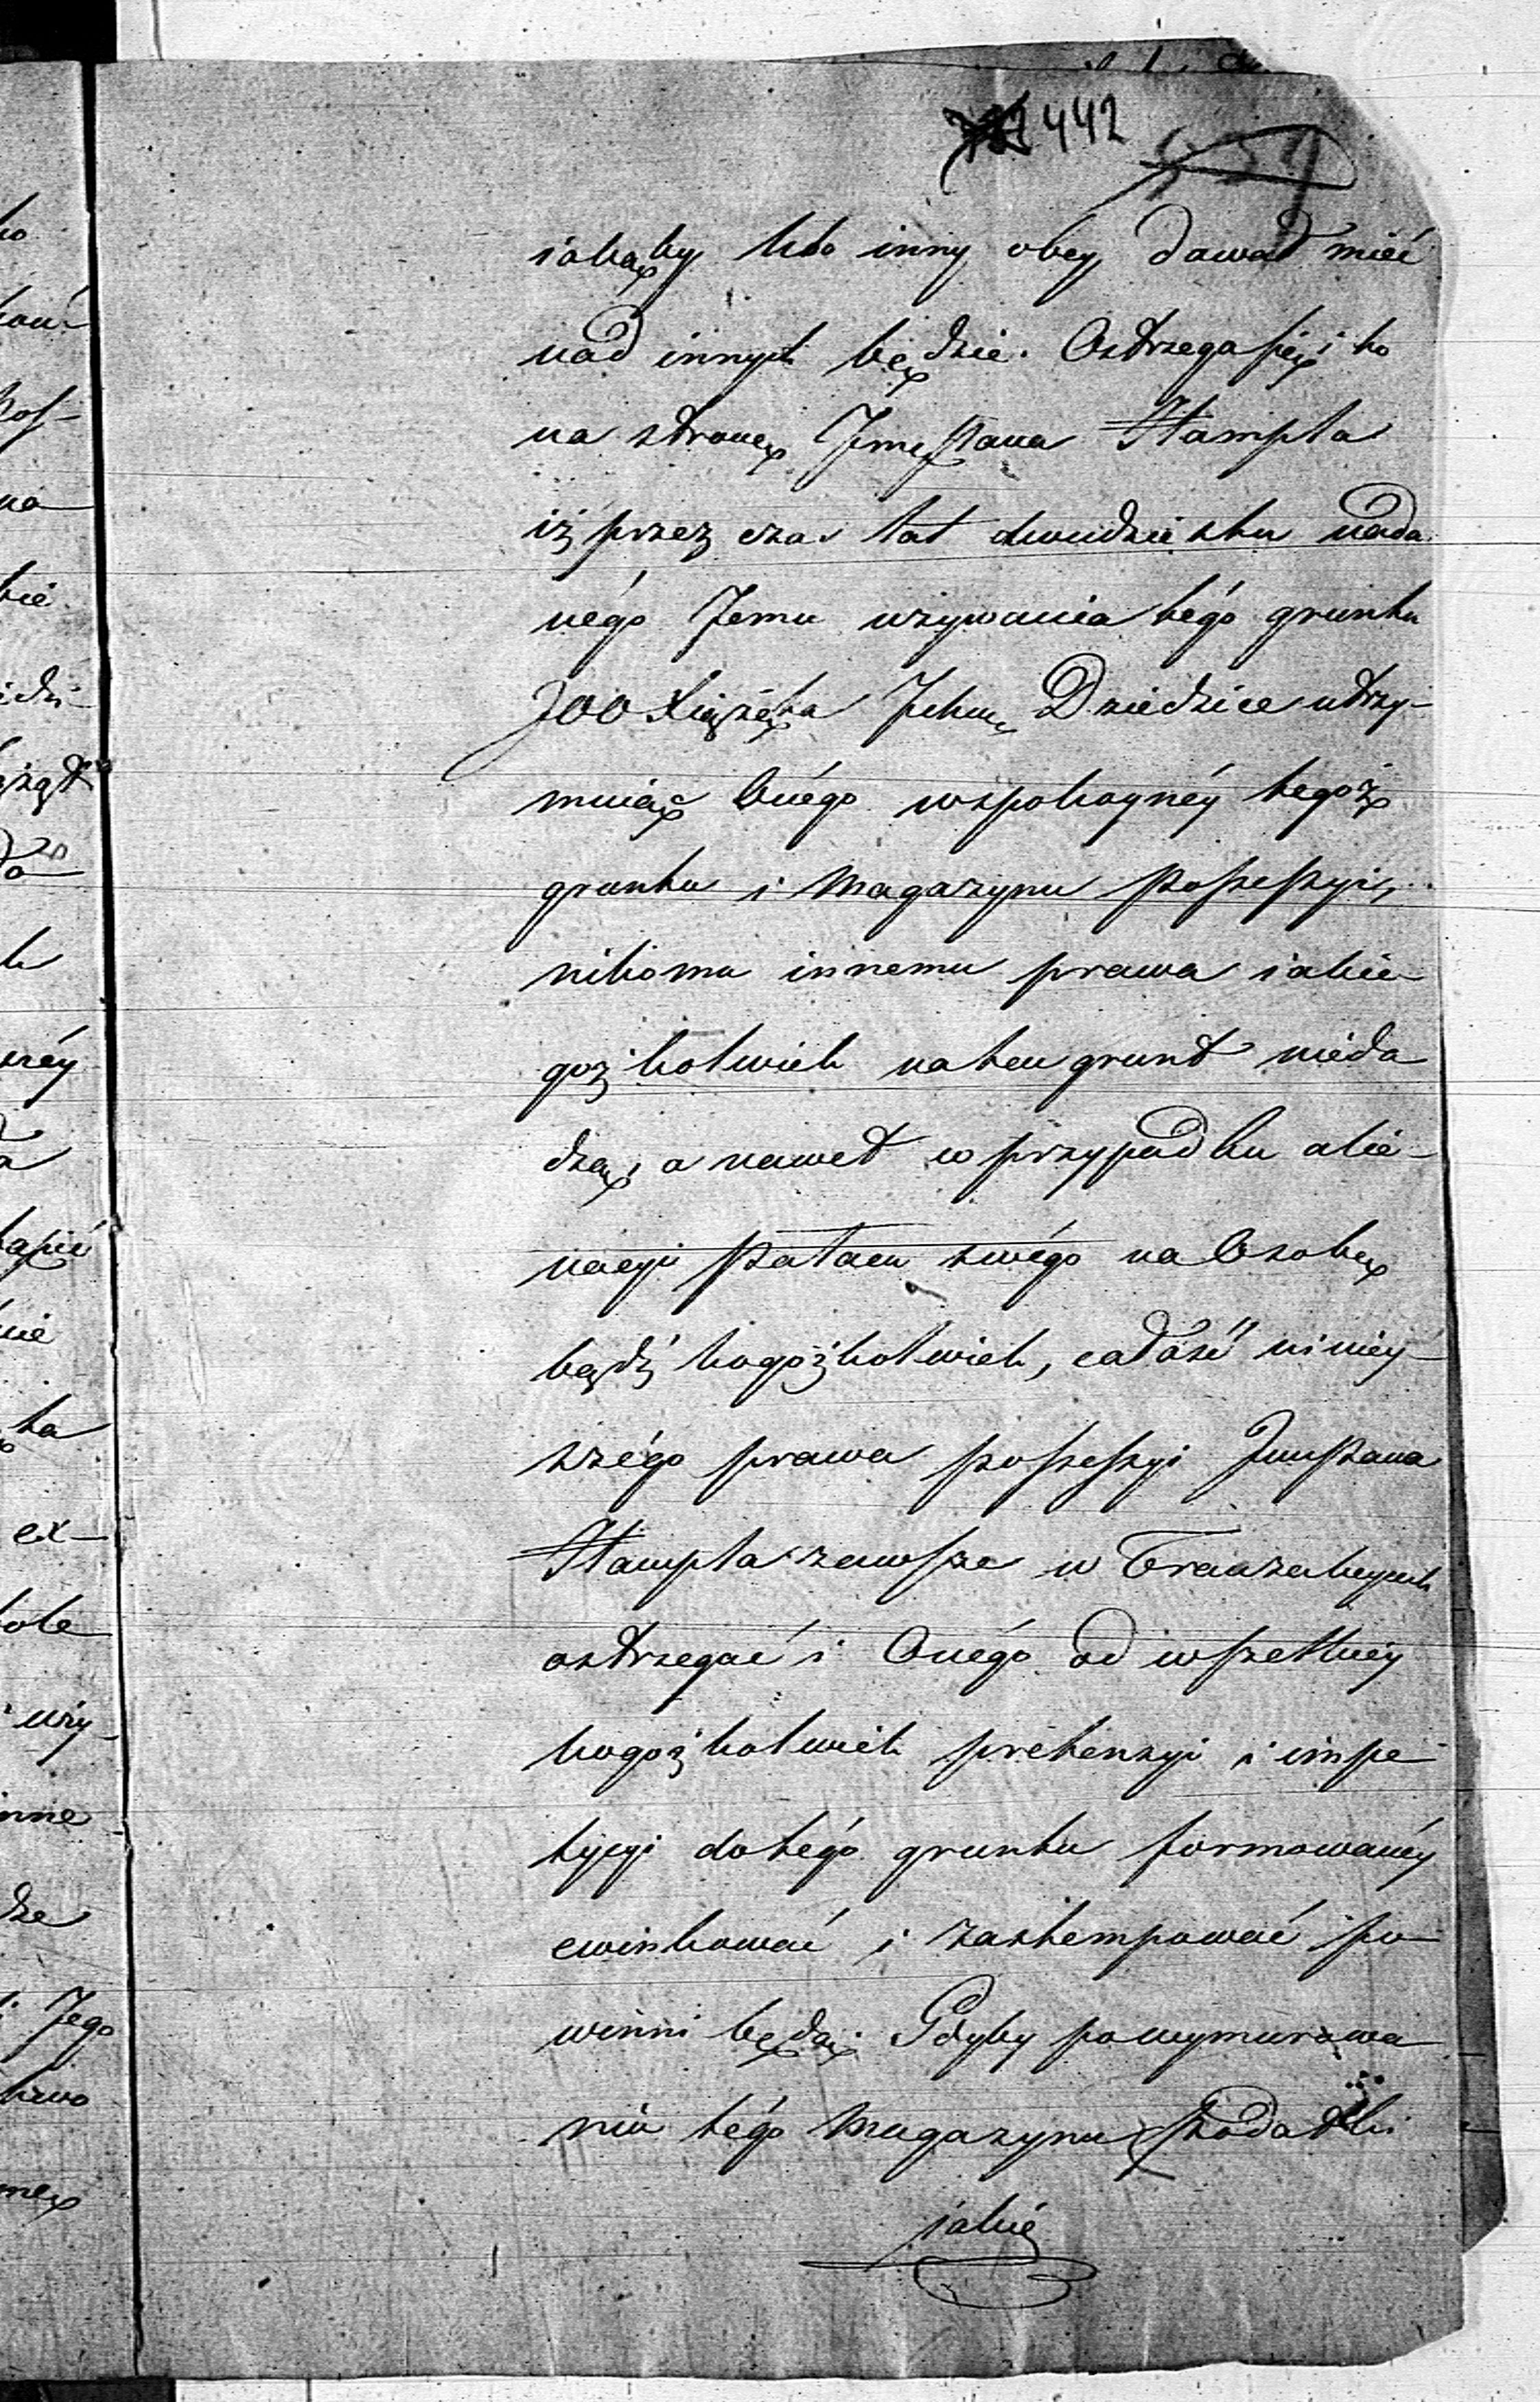 442
iakąby kto inny obcy dawał mieć
nad innych będzie. Ostrzega się i to
na stronę Jmcpana Hampla
iż przez czas lat dwudziestu nada
nego Jemu używania tego gruntu
JOO Xiążęta Ichmć Dziedzice utrzy-
muiąc Onego w spokoynéy tegoż
gruntu i Magazynu Possessyi,
nikomu innemu prawa iakie-
goż kolwiek na ten grunt nieda
dzą, a nawet w przypadku alie-
nacyi Pałacu swégo na Osobę
bądź kogóżkolwiek, całość niniey-
szégo prawa possessyi JmPana
Hampla zawsze w Tranzakcyach
ostrzegać i Onégo od wszelkiey
kogoż kolwiek pretensyi i impe
tycyi do tégo gruntu formowanéy
ewinkować i zastempować po-
winni będą. Gdyby po wymurowa
niu tégo Magazynu Podatki
jakie
ko
na
bie
ex-
inne
Jego